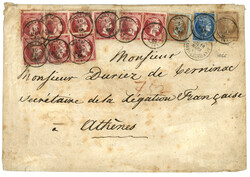 Monsieur
Monsieur Duriez de Verninac
Secrétaire de la Légation Française
Athènes